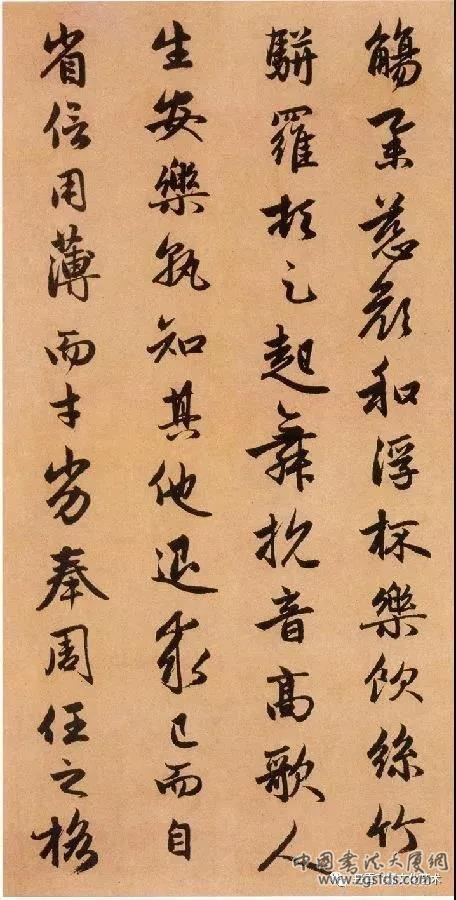 觴举慈顔和浮杯樂飲絲竹
駢羅頓足起舞抗音高歌人
生安樂孰知其他退求己而自
省信用薄而才劣奉周任之格
中国书法大厦网
www.zgsfds.com